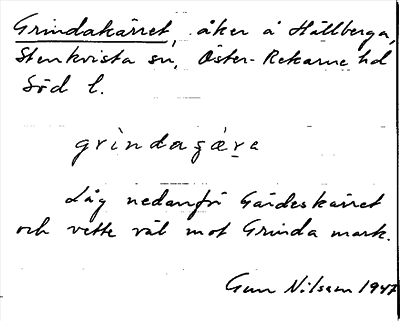 Grindakärret, åker å Hällberga,
Stenkvista sn, Öster-Rekarne hd
Söd l.
grìndaçæ̀ṛa
Låg nedanför Gärdeskärret
och vette väl mot Grinda mark.
Gun Nilsson 1947